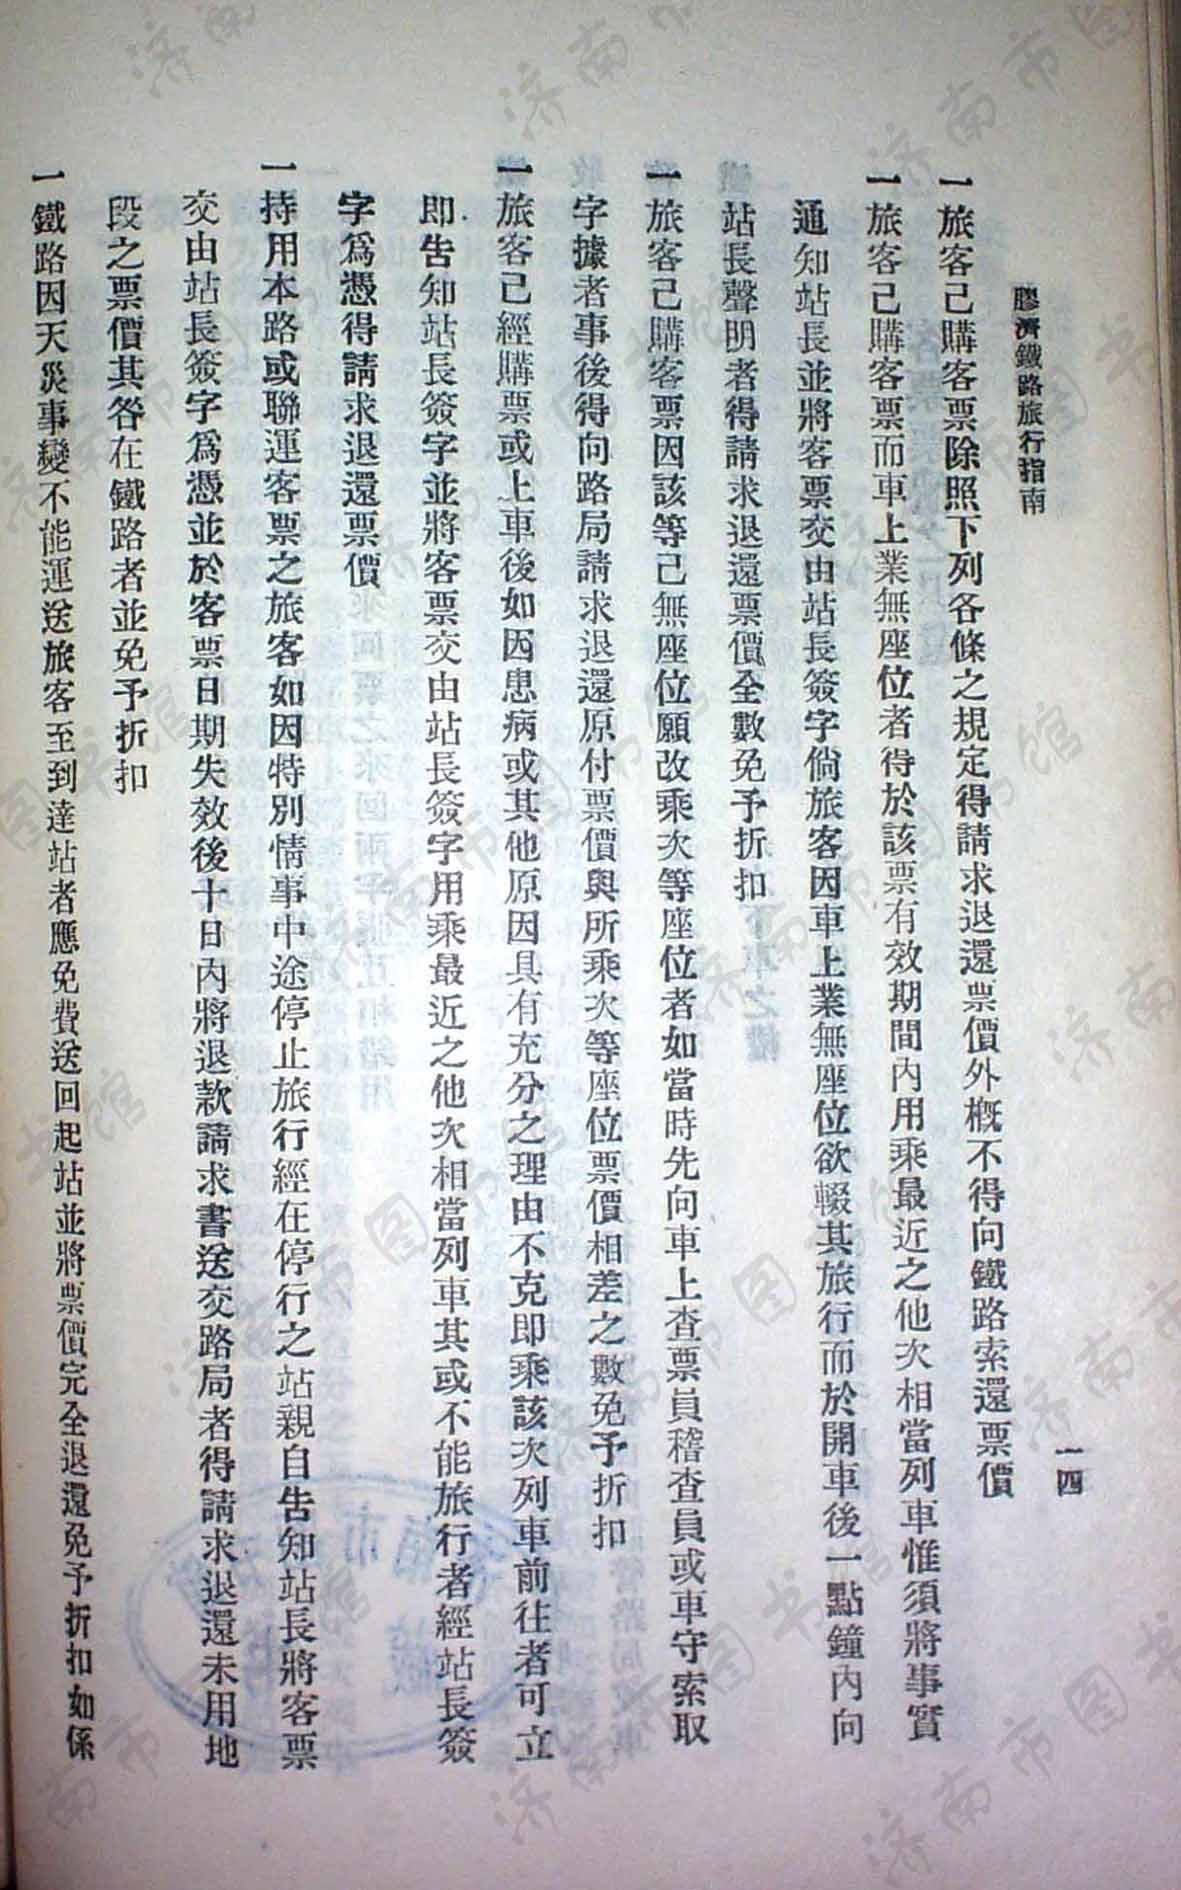 膠濟鐵路旅行指南
一四
一旅客已購客票除照下列各條之規定得請求退還票價外概不得向鐵路索還票價
一旅客已購客票而車上業無座位者得於該票有效期間內用乘最近之他次相當列車惟須將事實
通知站長並將客票交由站長簽字倘旅客因車上業無座位欲輟其旅行而於開車後一點鐘內向
站長聲明者得請求退還票價全數免予折扣
一旅客已購客票因該等已無座位願改乘次等座位者如當時先向車上查票員稽查員或車守索取
字據者事後得向路局請求退還原付票價與所乘次等座位票價相差之數免予折扣
一旅客已經購票或上車後如因患病或其他原因具有充分之理由不克即乘該次列車前往者可立
即告知站長簽字並將客票交由站長簽字用乘最近之他次相當列車其或不能旅行者經站長簽
字爲憑得請求退還票價
一持用本路或聯運客票之旅客如因特別情事中途停止旅行經在停行之站親自告知站長將客票
交由站長簽字爲憑並於客票日期失效後十日內將退款請求書送交路局者得請求退還未用地
段之票價其咎在鐵路者並免予折扣
一鐵路因天災事變不能運送旅客至到達站者應免費送回起站並將票價完全退還免予折扣如係
济南市图书馆